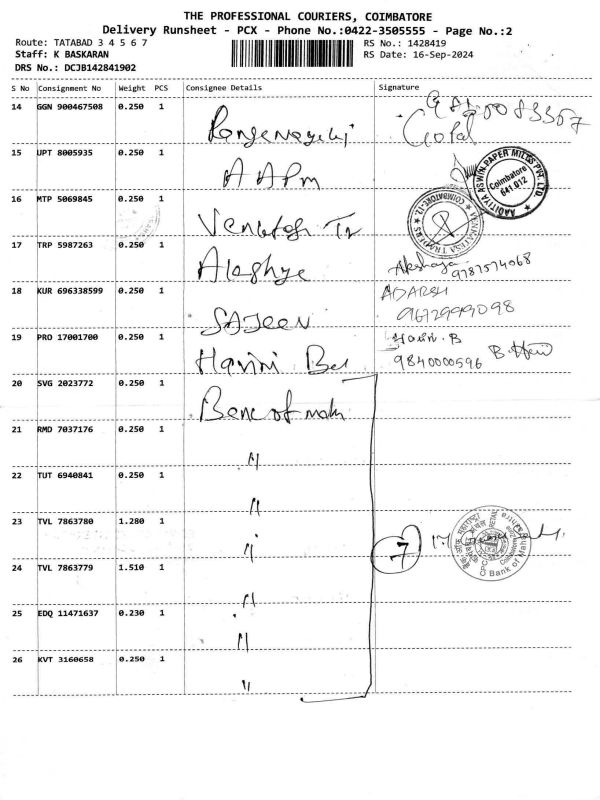 THE PROFESSIONAL COURIERS, COIMBATORE
Delivery Runsheet - PCX - Phone No.:0422-3505555 - Page No.:2
Route: TATABAD 3 4 5 6 7
RS No.: 1428419
Staff: K BASKARAN
RS Date: 16-Sep-2024
DRS No.: DCJB142841902
S No Consignment No Weight PCS Consignee Details Signature
14 GGN 900467508 0.250 1
Gopal
15 UPT 8005935 0.250 1 A A P M
AADITYA ASWIN PAPER MILLS PVT. LTD
Coimbatore
641 012
16 MTP 5069845 0.250 1 Venkatesh Tr
VENKATESA TRADERS COIMBATORE-12
17 TRP 5987263 0.250 1
Akshaya
9787574068
18 KUR 696338599 0.250 1 SAJEEV
ADARSH
9672999098
19 PRO 17001700 0.250 1 Harini
B
9840000596
20 SVG 2023772 0.250 1 Banc of mah
21 RMD 7037176 0.250 1 "
22 TUT 6940841 0.250 1 "
23 TVL 7863780 1.280 1 "
7
Bank of Mah
24 TVL 7863779 1.510 1 "
25 EDQ 11471637 0.230 1 "
26 KVT 3160658 0.250 1 "